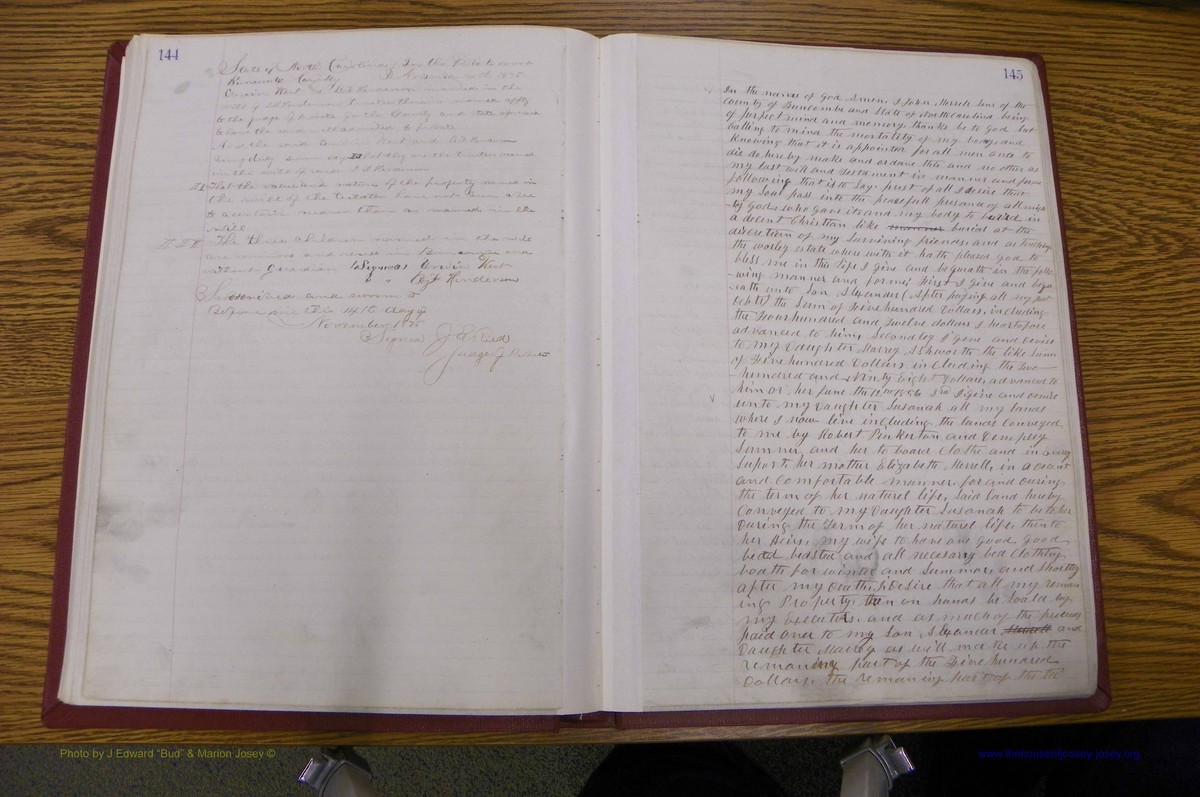 144
State of North Carolina In the Probate court
Buncombe County November 14th 1875
West & Henderson named in the
to the judge of Probate for the County and state aforesaid
to have the said will admitted to probate
And the said West and
being duly sworn say that they are the
in the will of
II That the value and nature of the property named in
the will of the testator have not been able
to ascertain nearer than as named in the
will
III The three children named in the will
are and reside in Buncombe and
without Guardian Signed West
" " Henderson
Subscribed and sworn to
Before me this 14th day of
November 1875
Signed J Reed
Judge of Probate
145
In the name of God Amen, I John Merrell Senr of the
County of Buncombe and State of North Carolina being
of perfect mind and memory thanks be to God but
calling to mind the mortality of my body and
knowing that it is appointed for all men once to
die do hereby make and ordane this and no other as
my last will and testament in manner and form
following that is to say. first of all I desire that
my Soul pass into the peacefull presance of almigh
ty God, who gave it and my body to buried in
a decent Christian like burial at the
discretion of my Surviving friends and as touching
the worley estate where with it hath pleased God to
bless me in this life I give and bequeath in the follo
wing manner and form first I give and bequ
eath unto Son Alexander (After paying all my just
debts) the Sum of Five hundred Dollars, including
the Four hundred and twelve dollars I heartofore
advanced to him, Secondly I give and devise
to my Daughter Marey Ashworth the like Sum
of Five hundred Dollars including the two
hundred and Ninty Eight Dollars, advanced to
him or her June the 12th 1856 3rd I give and devise
unto my Daughter Susanah all my lands
where I now live including the lands conveyed
to me by Robert Pinkerton and Dempsey
Sumner, and her to board Clothe and in every
Suport her mother Elizabeth Merrell, in a decent
and comfortable manner, for and during
the term of her naturel life, Said land hereby
Conveyed to my Daughter Susanah to be to her
During the Term of her naturel life, then to
her Heirs, my wife to have one good good
bedd bedsted and all necesary bed Clothing
boath for winter and Summer, and shortly
after my death, I desire that all my remain
ing Property, then on hands be Sould by
my Executors, and as much of the proceeds
paid over to my Son Alexander Merrell and
Daughter Marey as will make up the
remaning part of the Five hundred
Dollars, the remaning part of the
Photo by J Edward "Bud" & Marion Josey ©